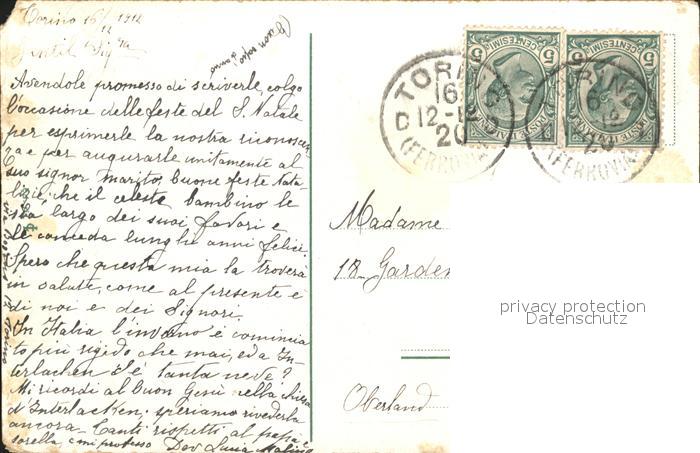 Torino 16/12 1912
Gentil Sig.ra
Avendole promesso di scriverle, colgo
l'occasione delle feste del S. Natale
per esprimerle la nostra riconoscen
za e per augurarle unitamente al
suo signor marito, buone feste Nata
lizie; che il celeste bambino le
sia largo dei suoi favori e
le conceda lunghi anni felici.
Spero che questa mia la troverà
in salute, come al presente è
di noi e dei Signori.
In Italia l'inverno è comincia
to più rigido che mai, ed a In-
terlachen c'è tanta neve?
Mi ricordi al buon Gesù nella chiesa
d'Interlacken; speriamo rivederla
ancora. Tanti rispetti al papa e
sorella, e mi professo Dev Lucia
TORINO
16
12-12
20
D
(FERROVIA)
5 CENTESIMI 5
POSTE ITALIANE
5 CENTESIMI 5
TORINO
12
20
(FERROVIA)
Madame
18 Garden
Oberland
privacy protection
Datenschutz